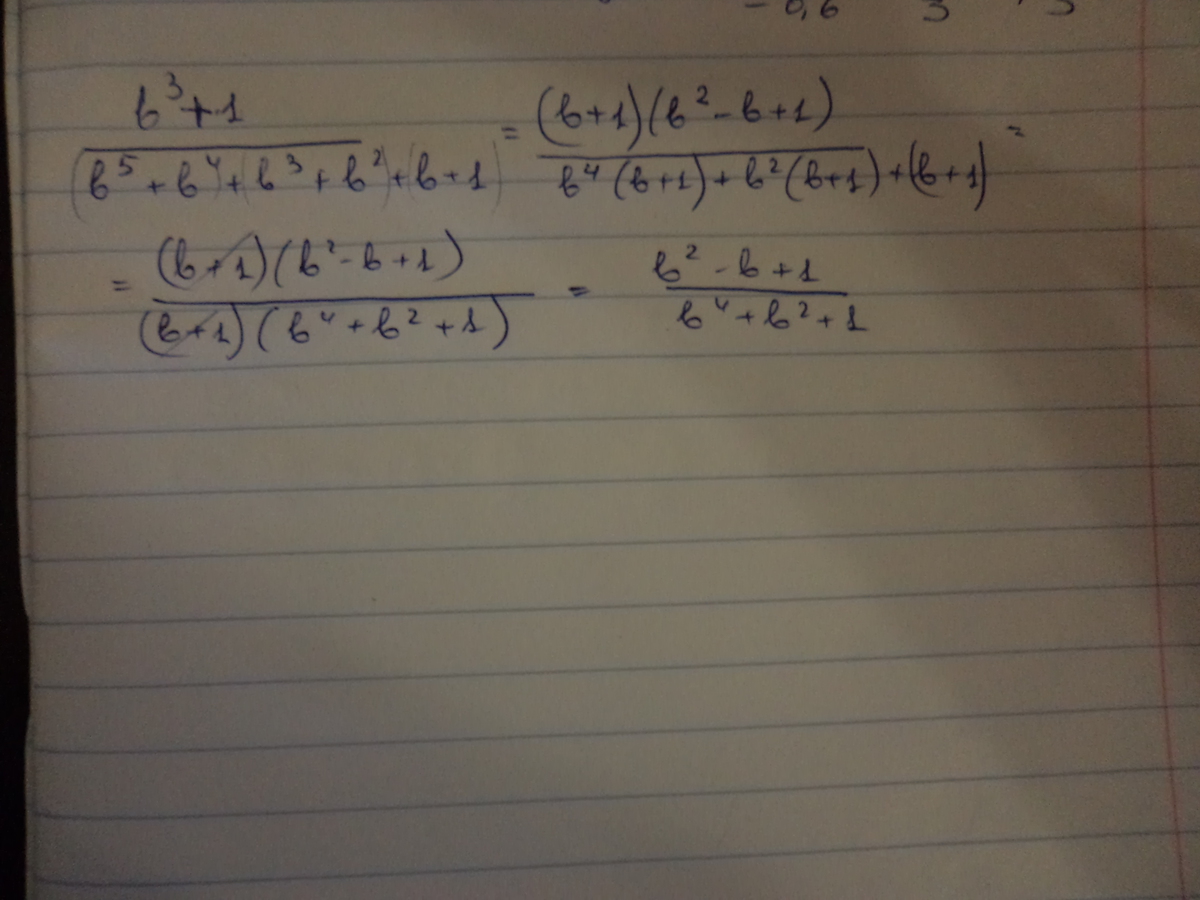 -0,6 3 3
(b³+1)/((b⁵+b⁴)+(b³+b²)+(b+1)) = ((b+1)(b²-b+1))/(b⁴(b+1)+b²(b+1)+(b+1)) =
= ((b+1)(b²-b+1))/((b+1)(b⁴+b²+1)) = (b²-b+1)/(b⁴+b²+1)